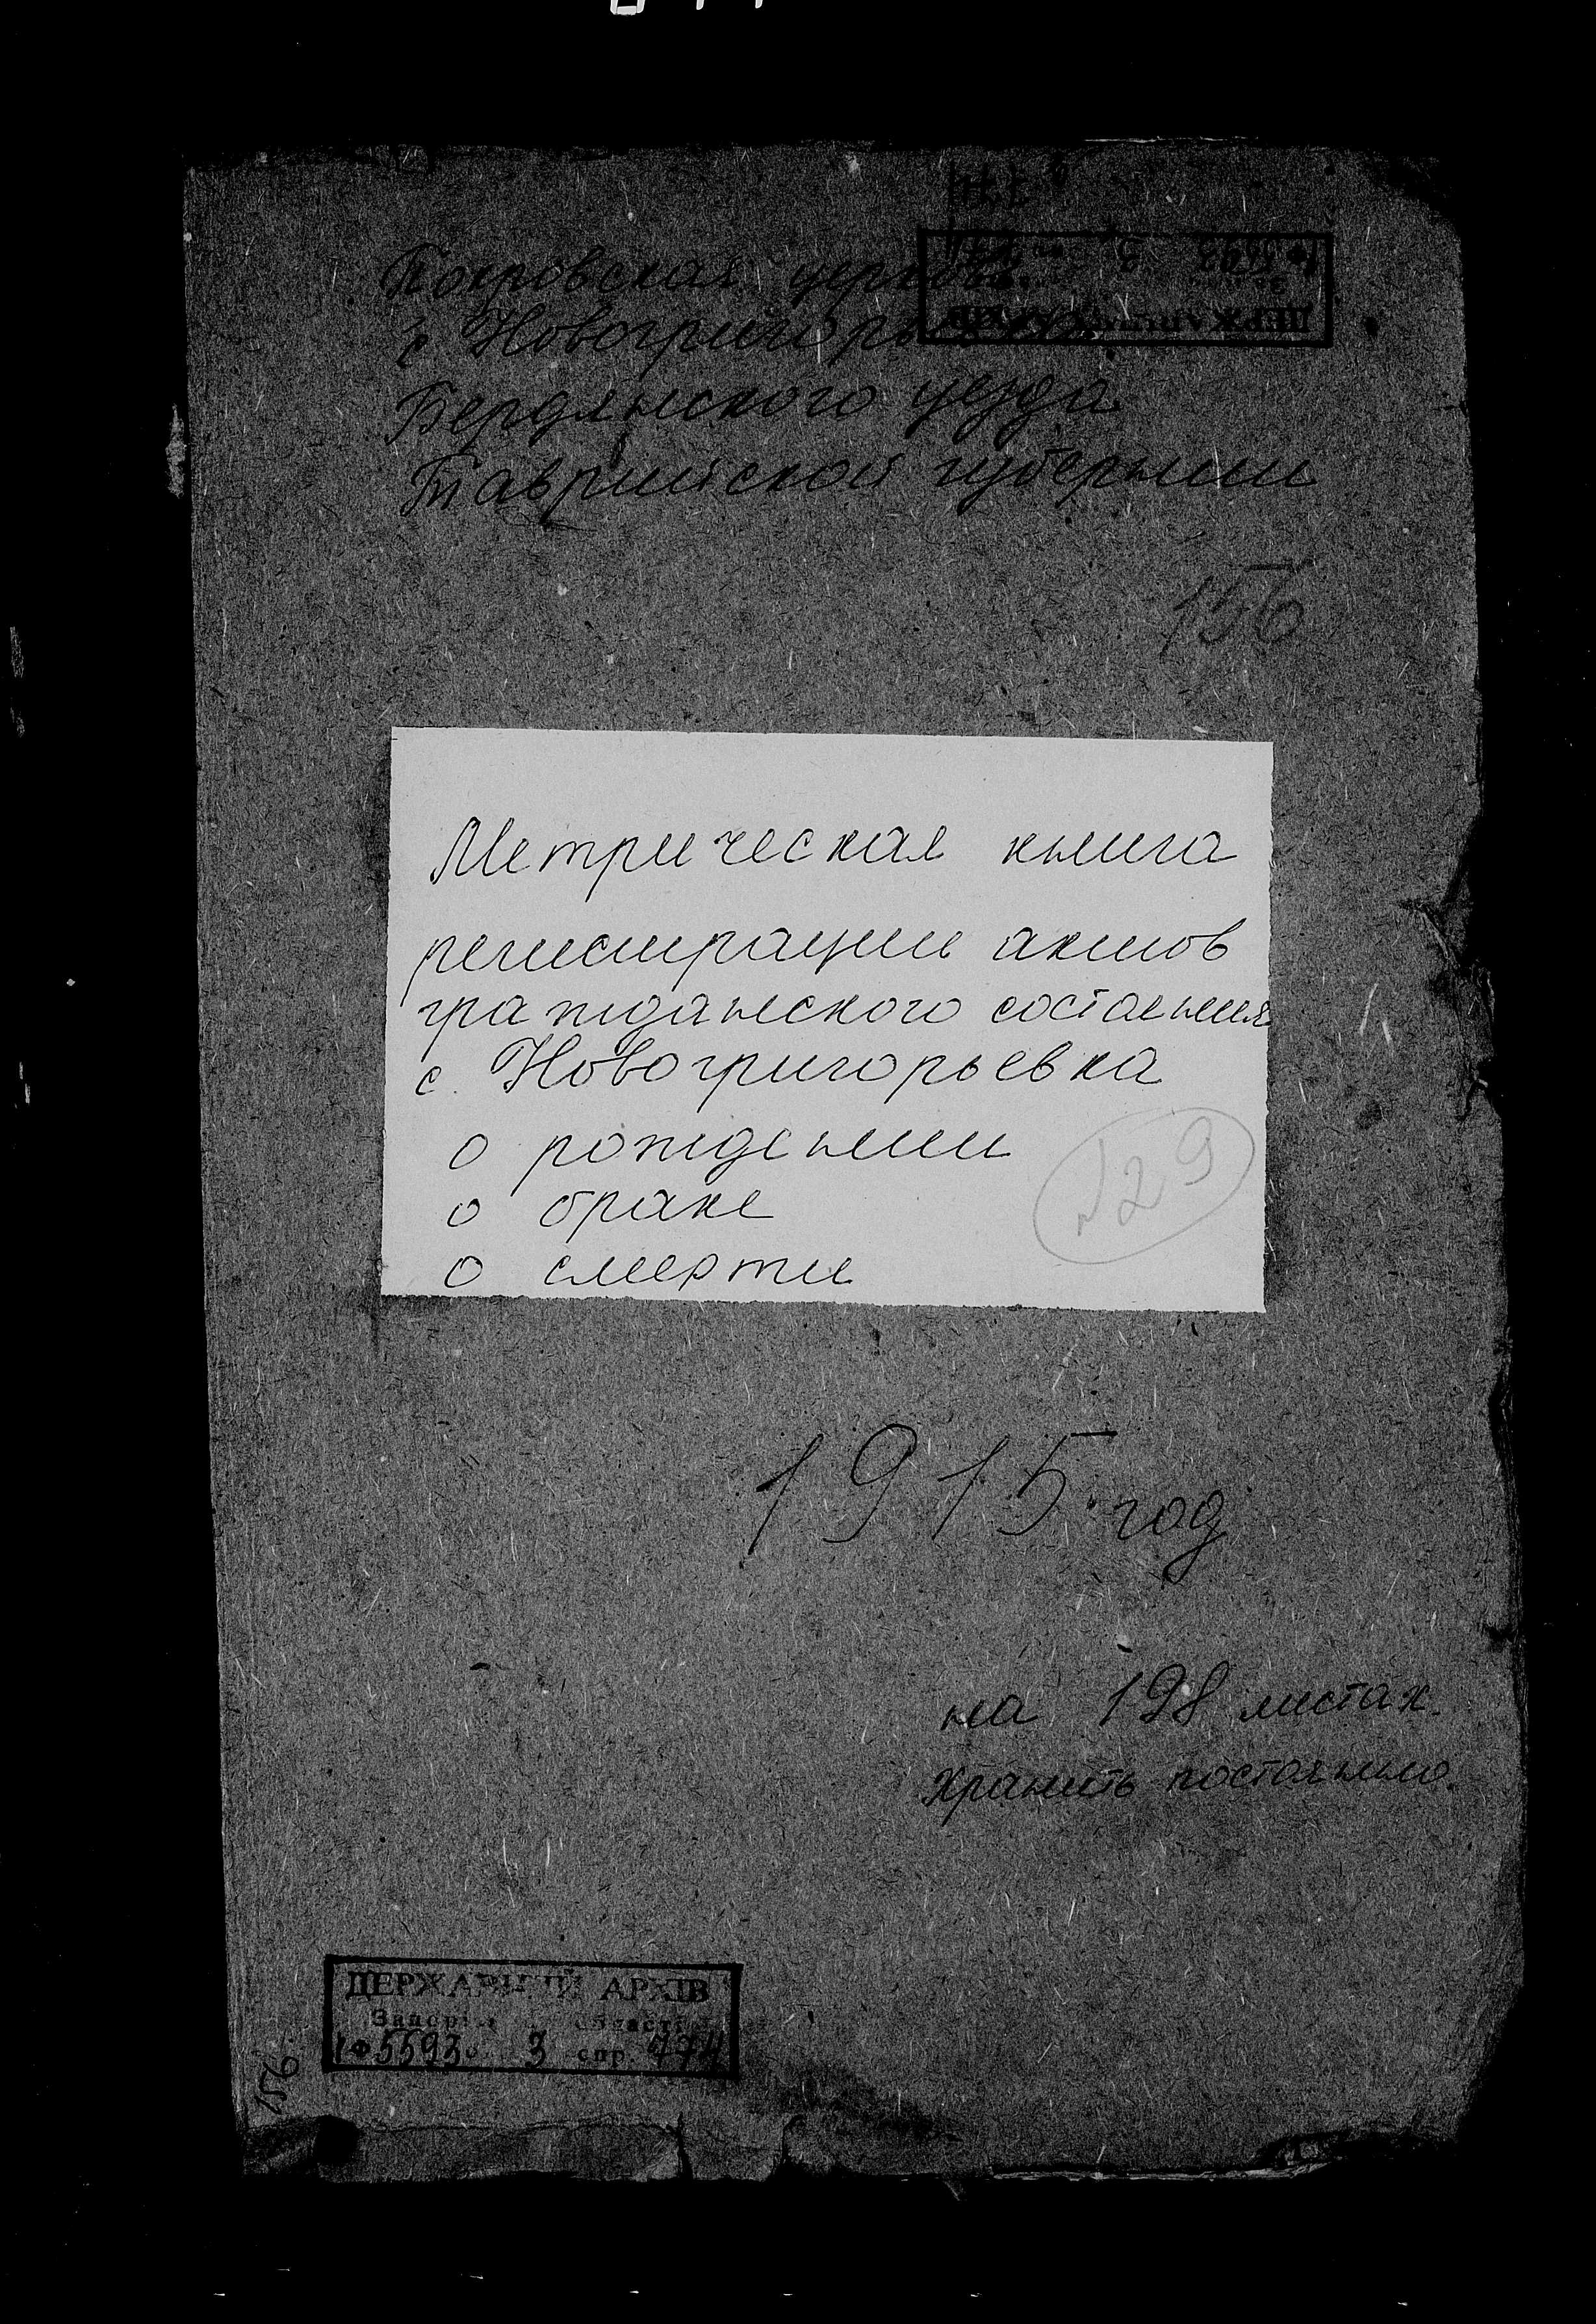 Покровская церковь
с Новогригорьевка
Бердянского уезда
Таврийской губернии
156
Метрическая книга
регистрации актов
гражданского состаения
с. Новогригорьевка
о рождении
о браке
о смерти
№29
1915 год
на 198 листах.
Хранить постоянно.
ДЕРЖАВНИЙ АРХІВ
області
Ф 5593 3 спр. 774
156